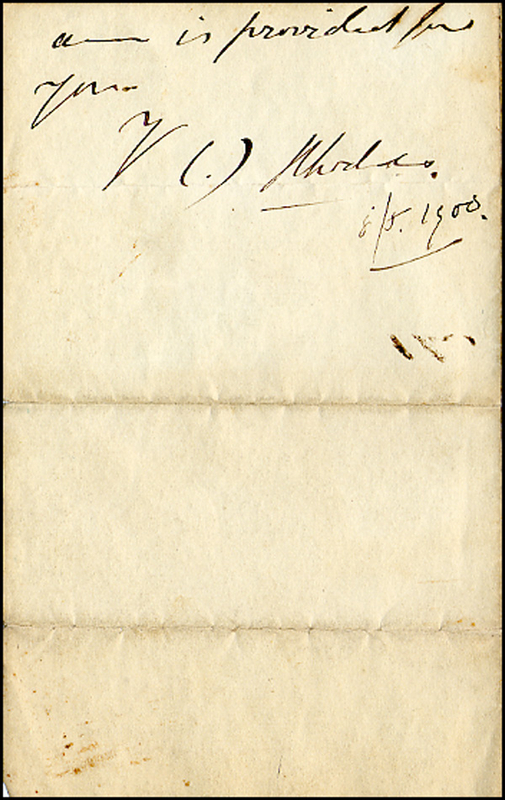 is provided for
you
Y (.) Rhodes.
8/5. 1900.